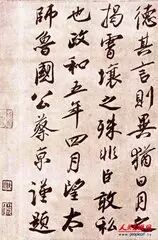 德其言則異猶日月
揭霄壤之殊非臣敢私
也政和五年四月望太
師魯國公蔡京謹題